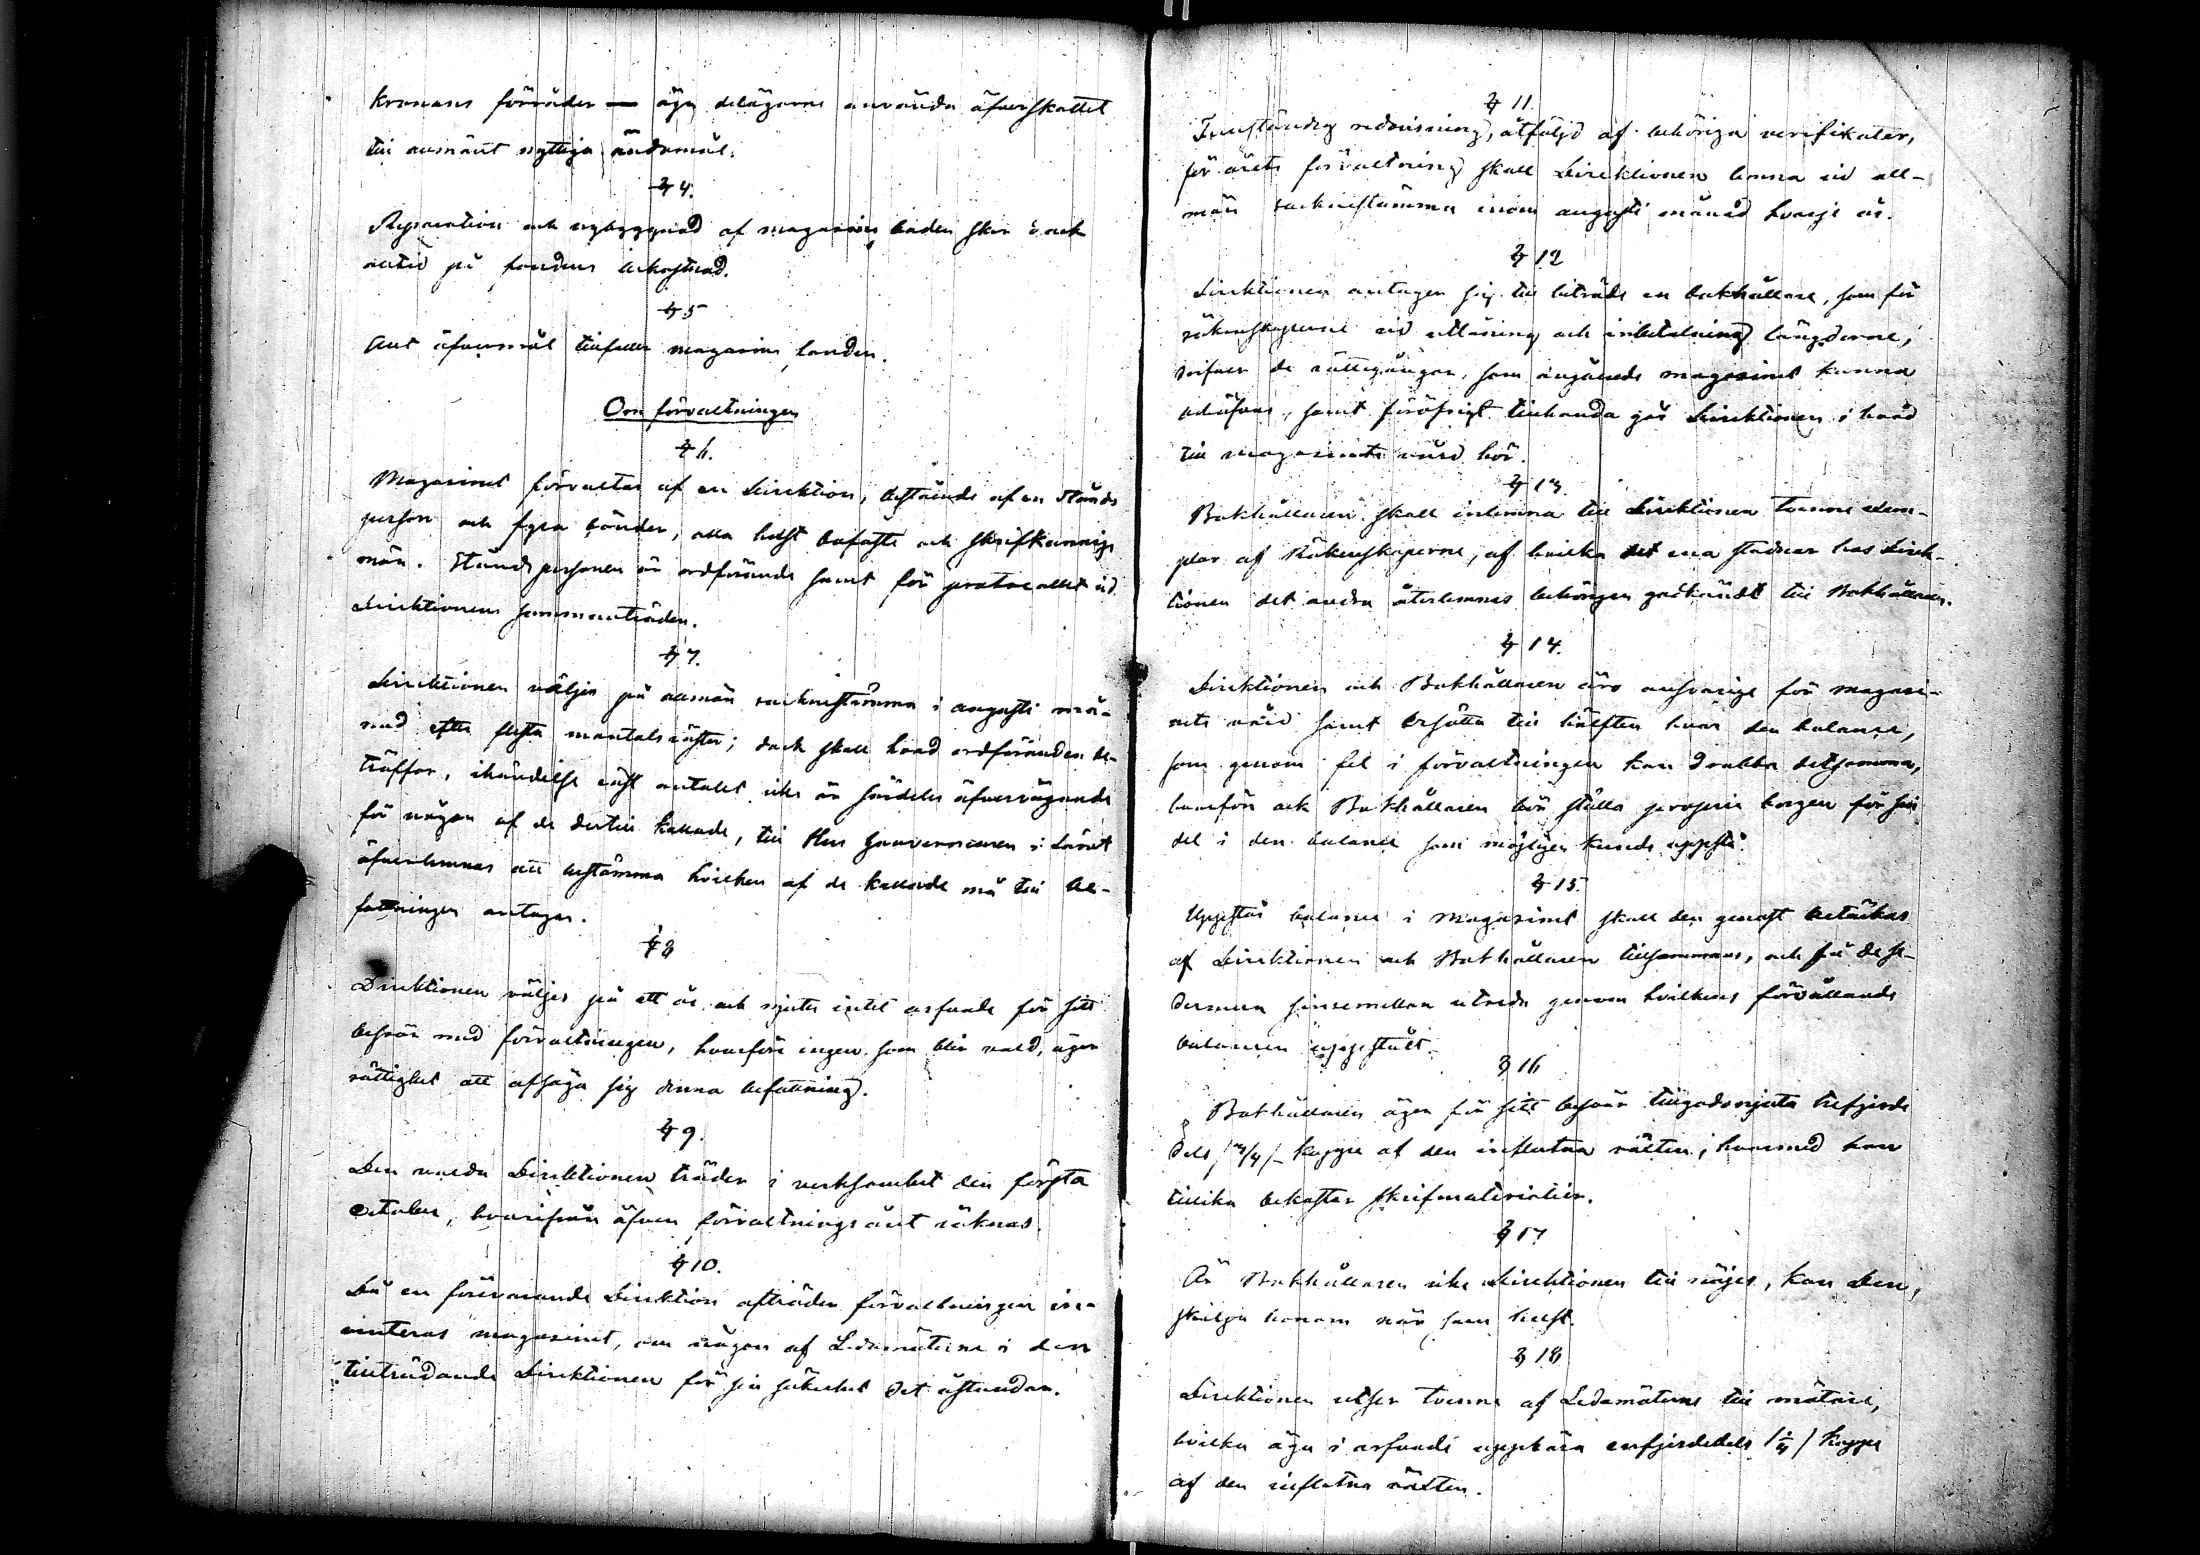 Kronans förråder — äga delägarne använda öfverskottet
till allmänt nyttiga ändamål.
§ 4.
Reparation och nybyggnad af magasins boden sker ock
alltid på fondens bekostnad.
§ 5
Allt öfvermål tillfaller magasins fonden.
Om förvaltningen
§ 6.
Magasinet förvaltas af en Direktion, bestående af en Stånds
person och fyra bönder, alla helst bofaste och skrifkunnige
män. Ståndspersonen är ordförande samt för protocollet vid
Direktionens sammanträden.
§ 7.
Direktionen väljes på allmän sockenstämma i augusti må-
nad efter flesta mantals röster; dock skall hvad ordföranden be-
träffar, i händelse röst antalet icke är särdeles öfvervägande
för någon af de dertill kallade, till Herr Gouverneuren i Länet
öfverlemnas att bestämma hvilken af de kallade må till be-
fattningen antagas.
§ 8
Direktionen väljes på ett år och njute intet arfvode för sitt
besvär med förvaltningen, hvarföre ingen som blir vald, äger
rättighet att afsäga sig denna befattning.
§ 9.
Den valda Direktionen träder i verksamhet den första
October, hvarifrån äfven förvaltnings året räknas.
§ 10.
Då en förevarande Direktion afträder förvaltningen in-
venteras magasinet, om någon af Ledamöterne i den
tillträdande Direktionen för sin säkerhet det åstundar.
§ 11.
Fullständig redovisning, åtföljd af behöriga verifikater,
för årets förvaltning skall Direktionen lemna vid all-
män sockenstämma inom augusti månad hvarje år.
§ 12
Direktionen antager sig till biträde en bokhållare, som för
räkenskaperne vid utlåning och inbetalning längderne,
drifver de rättegångar, som angående magasinet kunna
behöfvas, samt föröfrigt tillhanda går Direktionen i hvad
till magasinets vård hör.
§ 13.
Bokhållaren skall inlemna till Direktionen tvenne exem-
plar af Räkenskaperne, af hvilka det ena stadnar hos Direk-
tionen det andra återlemnas behörigen godkändt till Bokhållaren.
§ 14.
Direktionen och Bokhållaren äro ansvarige för magasi-
nets vård samt ersätta till hälften hvar den balance,
som genom fel i förvaltningen kan drabba detsamma,
hvarför ock Bokhållaren bör ställa proprie borgen för sin
del i den balance som möjligen kunde uppstå.
§ 15.
Uppstår balance i Magasinet skall den genast betäckas
af Direktionen och Bokhållaren tillsammans, och få desse
dermera sinsemellan utreda genom hvilkens förvållande
balancen uppstått.
§ 16
Bokhållaren äger för sitt besvär tillgodonjuta trefjerde
dels /3/4/ kappe af den influtna räntan, hvarmed han
tillika bekostar skrifmaterialier.
§ 17
Är Bokhållaren icke Direktionen till nöjes, kan den
skilja honom när som helst.
§ 18
Direktionen utser tvenne af Ledamöterne till mätare,
hvilka äga i arfvode uppbära enfjerdedels /1/4/ kappe
af den influtna räntan.